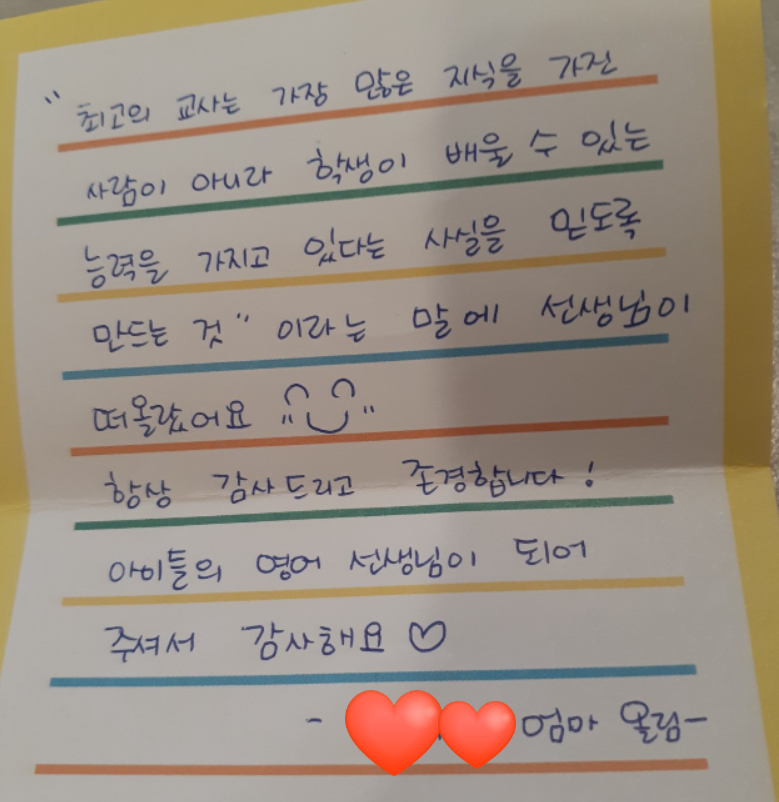 "최고의 교사는 가장 많은 지식을 가진
사람이 아니라 학생이 배울 수 있는
능력을 가지고 있다는 사실을 믿도록
만드는 것" 이라는 말에 선생님이
떠올랐어요
항상 감사드리고 존경합니다!
아이들의 영어 선생님이 되어
주셔서 감사해요♡
- 엄마 올림-